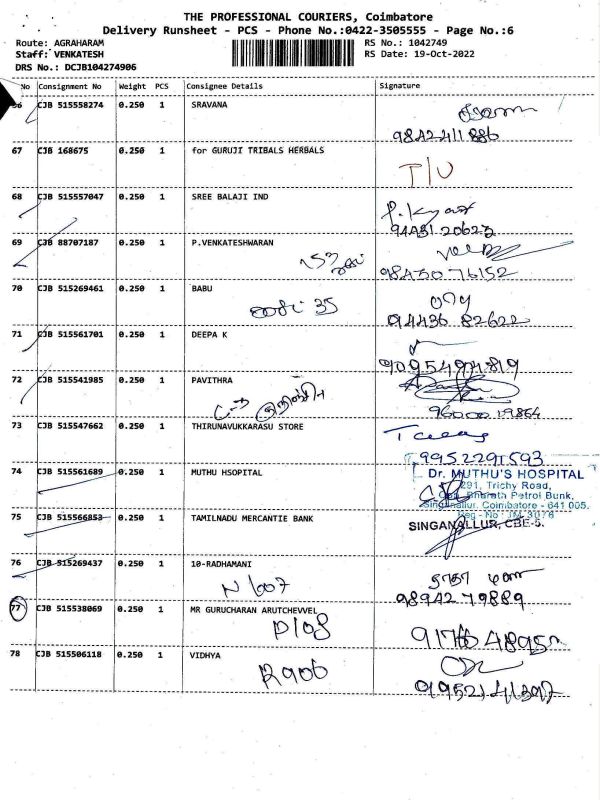 THE PROFESSIONAL COURIERS, Coimbatore
Delivery Runsheet - PCS - Phone No.:0422-3505555 - Page No.:6
Route: AGRAHARAM
Staff: VENKATESH
DRS No.: DCJB104274906
RS No.: 1042749
RS Date: 19-Oct-2022
No Consignment No Weight PCS Consignee Details Signature
66 CJB 515558274 0.250 1 SRAVANA
9842411886
67 CJB 168675 0.250 1 for GURUJI TRIBALS HERBALS
T/U
68 CJB 515557047 0.250 1 SREE BALAJI IND
69 CJB 88707187 0.250 1 P.VENKATESHWARAN
98430 76152
70 CJB 515269461 0.250 1 BABU
35
94436 82622
71 CJB 515561701 0.250 1 DEEPA K
9095494819
72 CJB 515541985 0.250 1 PAVITHRA
96000 19864
73 CJB 515547662 0.250 1 THIRUNAVUKKARASU STORE
9952291593
74 CJB 515561689 0.250 1 MUTHU HSOPITAL
Dr. MUTHU'S HOSPITAL
291, Trichy Road,
Opp. Bharath Petrol Bunk,
Singanallur, Coimbatore - 641 005.
SINGANALLUR, CBE-5.
75 CJB 515566853 0.250 1 TAMILNADU MERCANTIE BANK
76 CJB 515269437 0.250 1 10-RADHAMANI
N 1007
98942 79889
77 CJB 515538069 0.250 1 MR GURUCHARAN ARUTCHEVVEL
D108
78 CJB 515506118 0.250 1 VIDHYA
R906